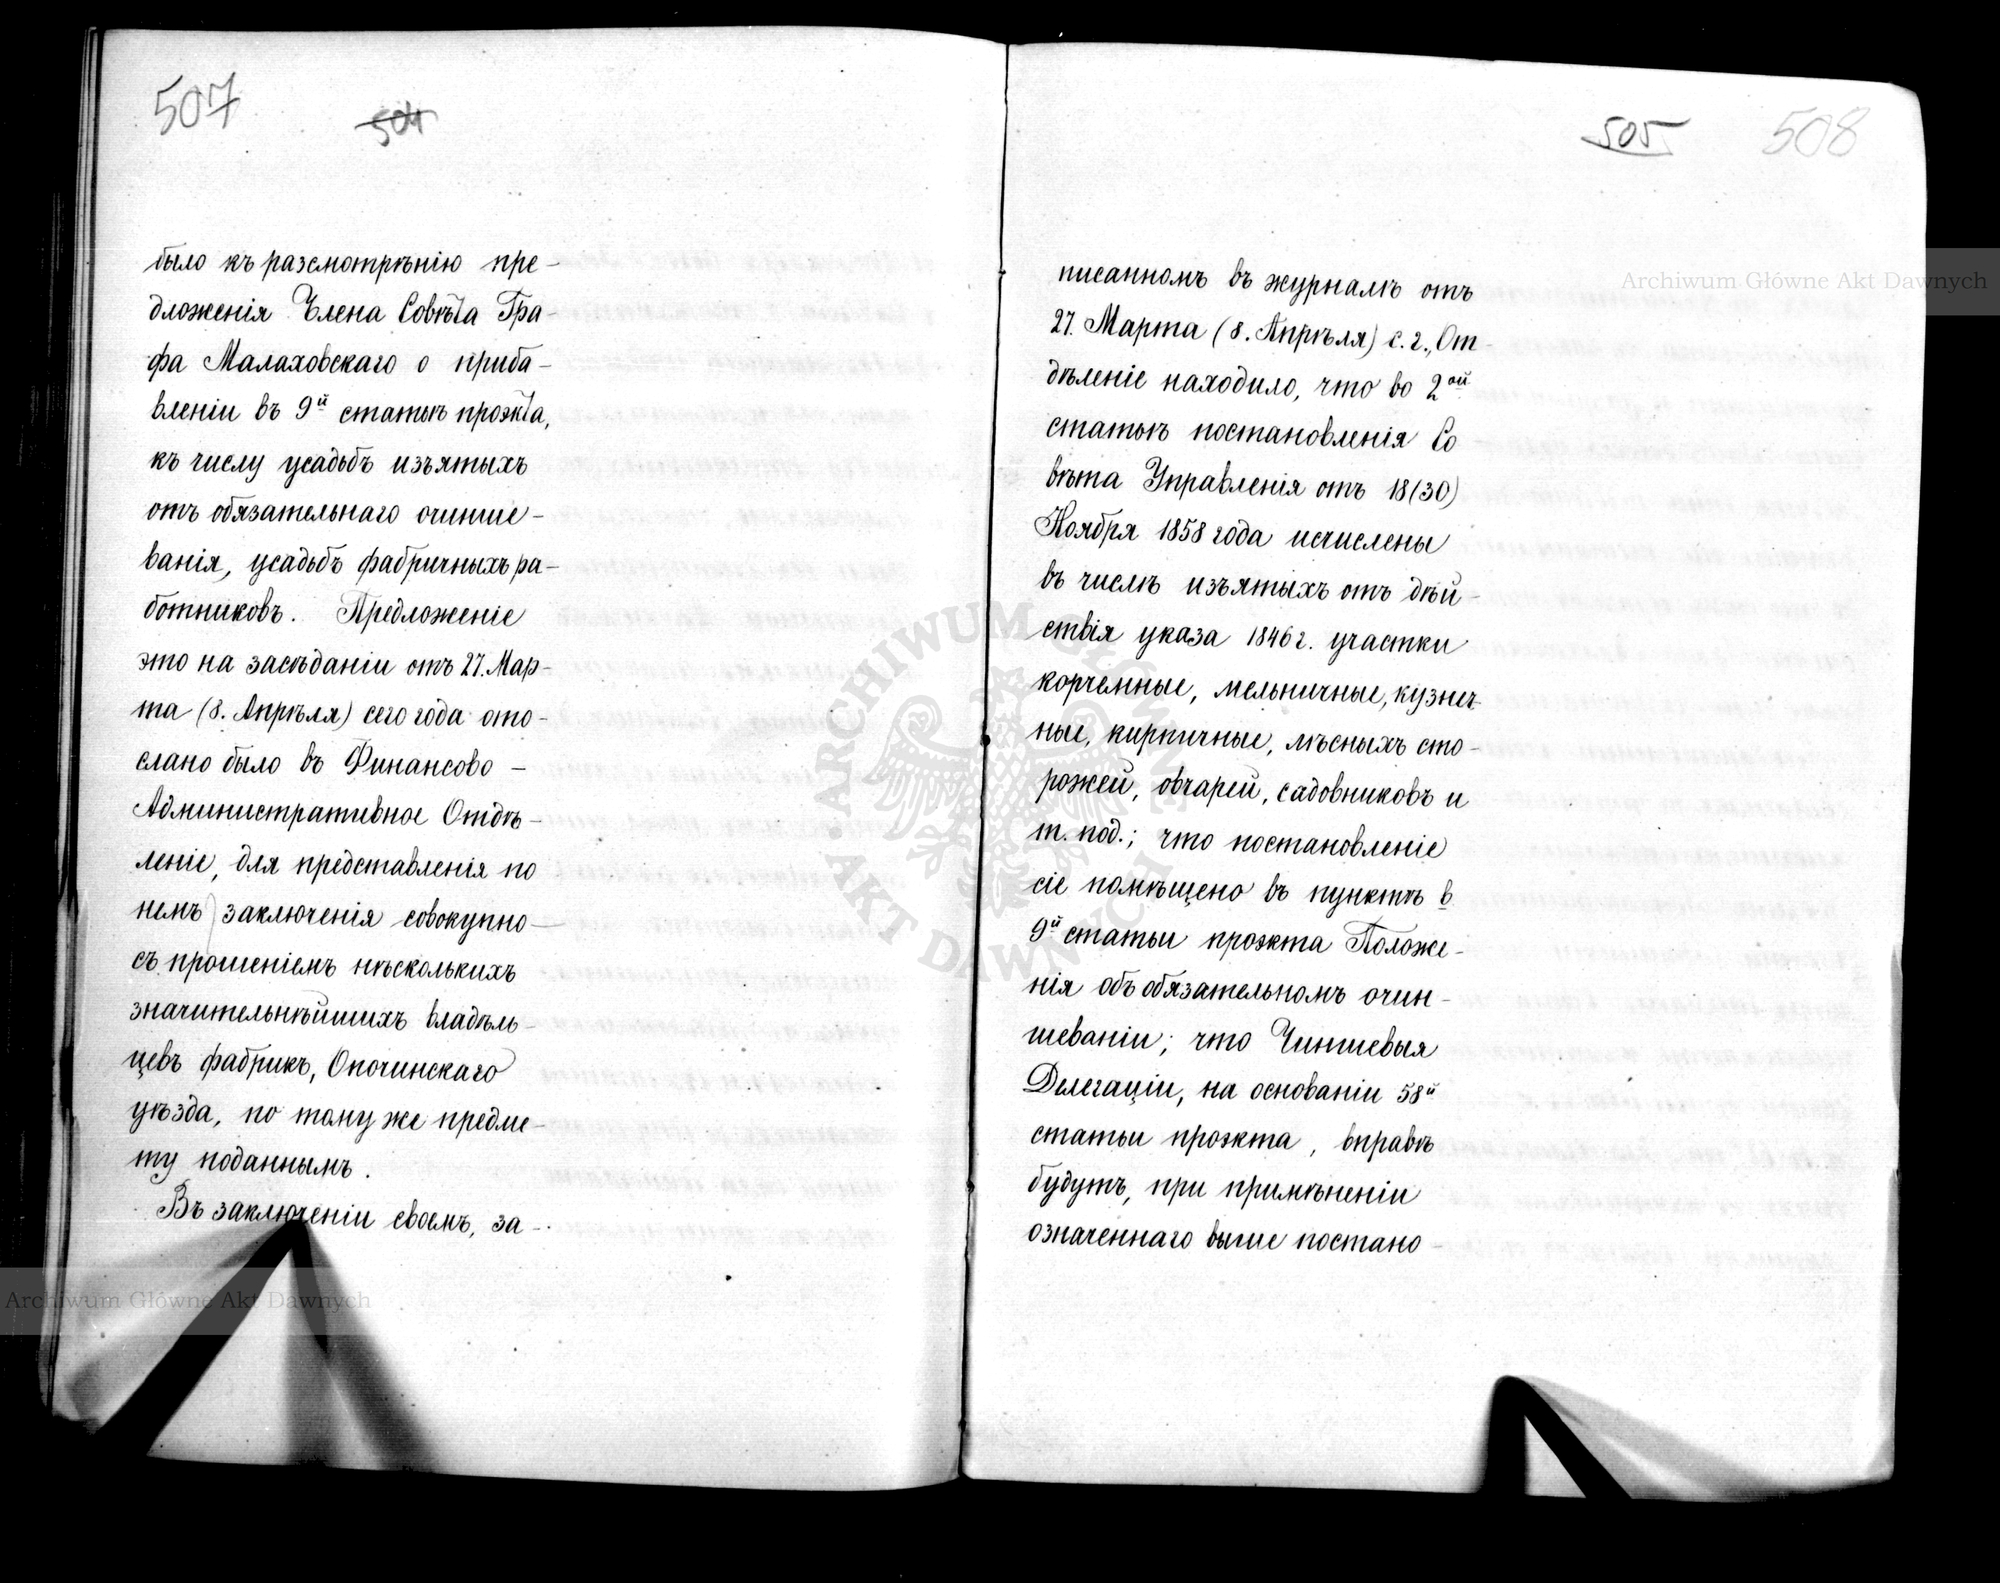 507
504
было къ разсмотрѣнію пре-
дложенія Члена Совѣта Гра-
фа Малаховскаго о приба-
вленіи въ 9й статьѣ проэкта,
къ числу усадьбъ изъятыхъ
отъ обязательнаго очинше-
ванія, усадьбъ фабричныхъ ра-
ботниковъ. Предложеніе
это на засѣданіи отъ 27. Мар-
та (8. Апрѣля) сего года ото-
слано было въ Финансово-
Административное Отдѣ-
леніе, для представленія по
немъ заключенія совокупно
съ прошеніемъ нѣсколькихъ
значительнѣйшихъ владѣль-
цевъ фабрикъ, Опочинскаго
уѣзда, по тому же предме-
ту поданнымъ.
Въ заключеніи своемъ, за-
505
508
писанномъ въ журналѣ отъ
27. Марта (8. Апрѣля) с. г., От-
дѣленіе находило, что во 2ой
статьѣ постановленія Со
вѣта Управленія отъ 18(30)
Ноября 1858 года исчислены
въ числѣ изъятыхъ отъ дѣй-
ствія указа 1846 г. участки
корчемные, мельничные, кузнеч-
ные, кирпичные, лѣсныхъ сто-
рожей, овчарей, садовниковъ и
т. под.; что постановленіе
сіе помѣщено въ пунктѣ в
9й статьи проэкта Положе-
нія объ обязательномъ очин-
шеваніи; что Чиншевыя
Делегаціи, на основаніи 58й
статьи проэкта, вправѣ
будутъ, при примѣненіи
означеннаго выше постано-
Archiwum Główne Akt Dawnych
ARCHIWUM GŁÓWNE AKT DAWNYCH
Archiwum Główne Akt Dawnych